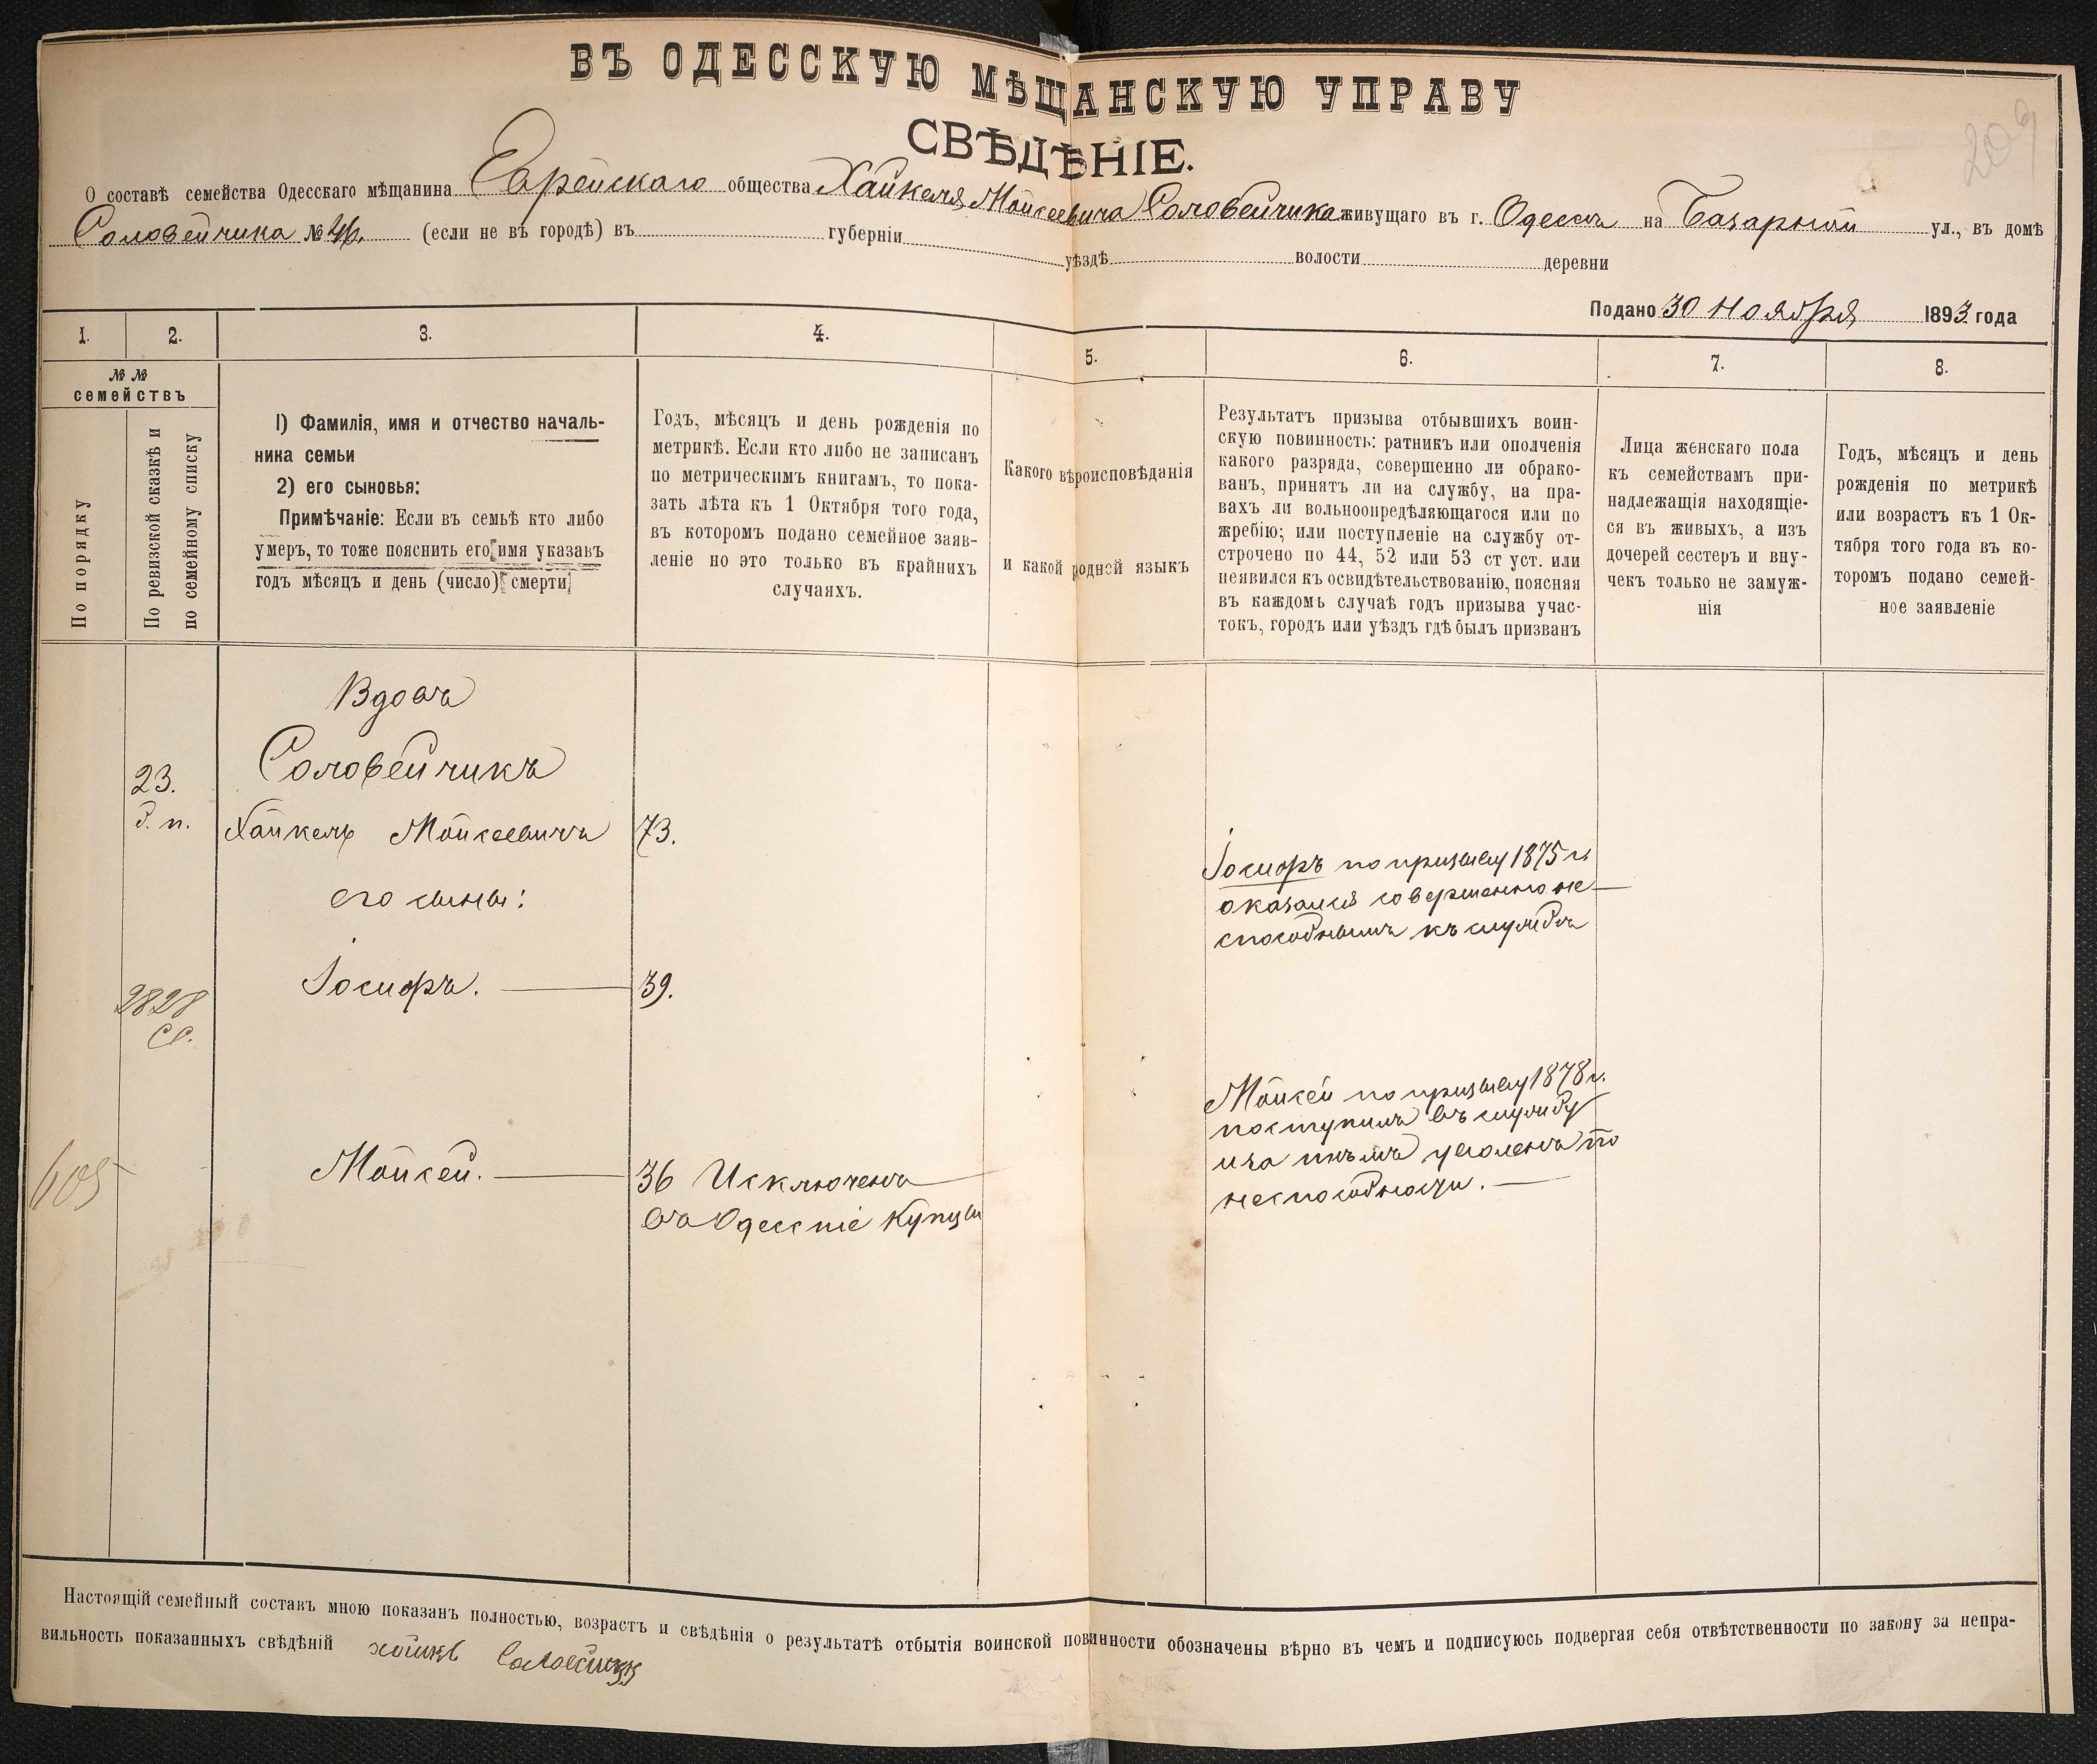 ВЪ ОДЕССКУЮ МѢЩАНСКУЮ УПРАВУ
СВѢДѢНІЕ.
О составѣ семейства Одесскаго мѣщанина Еврейскаго общества Хайкеля Мойсеевича Соловейчика живущаго въ г. Одессѣ на Базарной ул., въ домѣ
Соловейчика № 46. (если не въ городѣ) въ губерніи уѣздѣ волости деревни
Подано 30 Ноября 1893 года
1. 2. 3. 4. 5. 6. 7. 8.
№ №
семействъ
По порядку
По ревизской сказкѣ и
по семейному списку
1) Фамилія, имя и отчество началь-
ника семьи
2) его сыновья:
Примѣчаніе: Если въ семьѣ кто либо
умеръ, то тоже пояснить его имя указавъ
годъ мѣсяцъ и день (число) смерти
Годъ, мѣсяцъ и день рожденія по
метрикѣ. Если кто либо не записанъ
по метрическимъ книгамъ, то пока-
зать лѣта къ 1 Октября того года,
въ которомъ подано семейное заяв-
леніе но это только въ крайнихъ
случаяхъ.
Какого вѣроисповѣданія
и какой родней языкъ
Результатъ призыва отбывшихъ воин-
скую повинность: ратникъ или ополченія
какого разряда, совершенно ли обрако-
ванъ, принятъ ли на службу, на пра-
вахъ ли вольноопредѣляющагося или по
жребію; или поступленіе на службу от-
строчено по 44, 52 или 53 ст уст. или
неявился къ освидѣтельствованію, поясняя
въ каждомъ случаѣ годъ призыва учас-
токъ, городъ или уѣздъ гдѣ былъ призванъ
Лица женскаго пола
къ семействамъ при-
надлежащія находящіе-
ся въ живыхъ, а изъ
дочерей сестеръ и вну-
чекъ только не замуж-
нія
Годъ, мѣсяцъ и день
рожденія по метрикѣ
или возрастъ къ 1 Ок-
тября того года въ ко-
торомъ подано семей-
ное заявленіе
Вдовъ
Соловейчикъ
23.
д. п.
Хайкель Мойсеевичъ 73.
его сыны:
Іосифъ по призыву 1875 г.
оказался совершенно не
способнымъ къ службѣ
Іосифъ. 39.
2828
СС.
Мойсей по призыву 1878 г.
поступилъ въ службу
уволенъ по
неспособности.
605
Мойсей. 36 Исключенъ
въ Одесскіе Купцы
Настоящій семейный составъ мною показанъ полностью, возрастъ и свѣдѣнія о результатѣ отбытія воинской повинности обозначены вѣрно въ чемъ и подписуюсь подвергая себя отвѣтственности по закону за непра-
вильность показанныхъ свѣдѣній
209